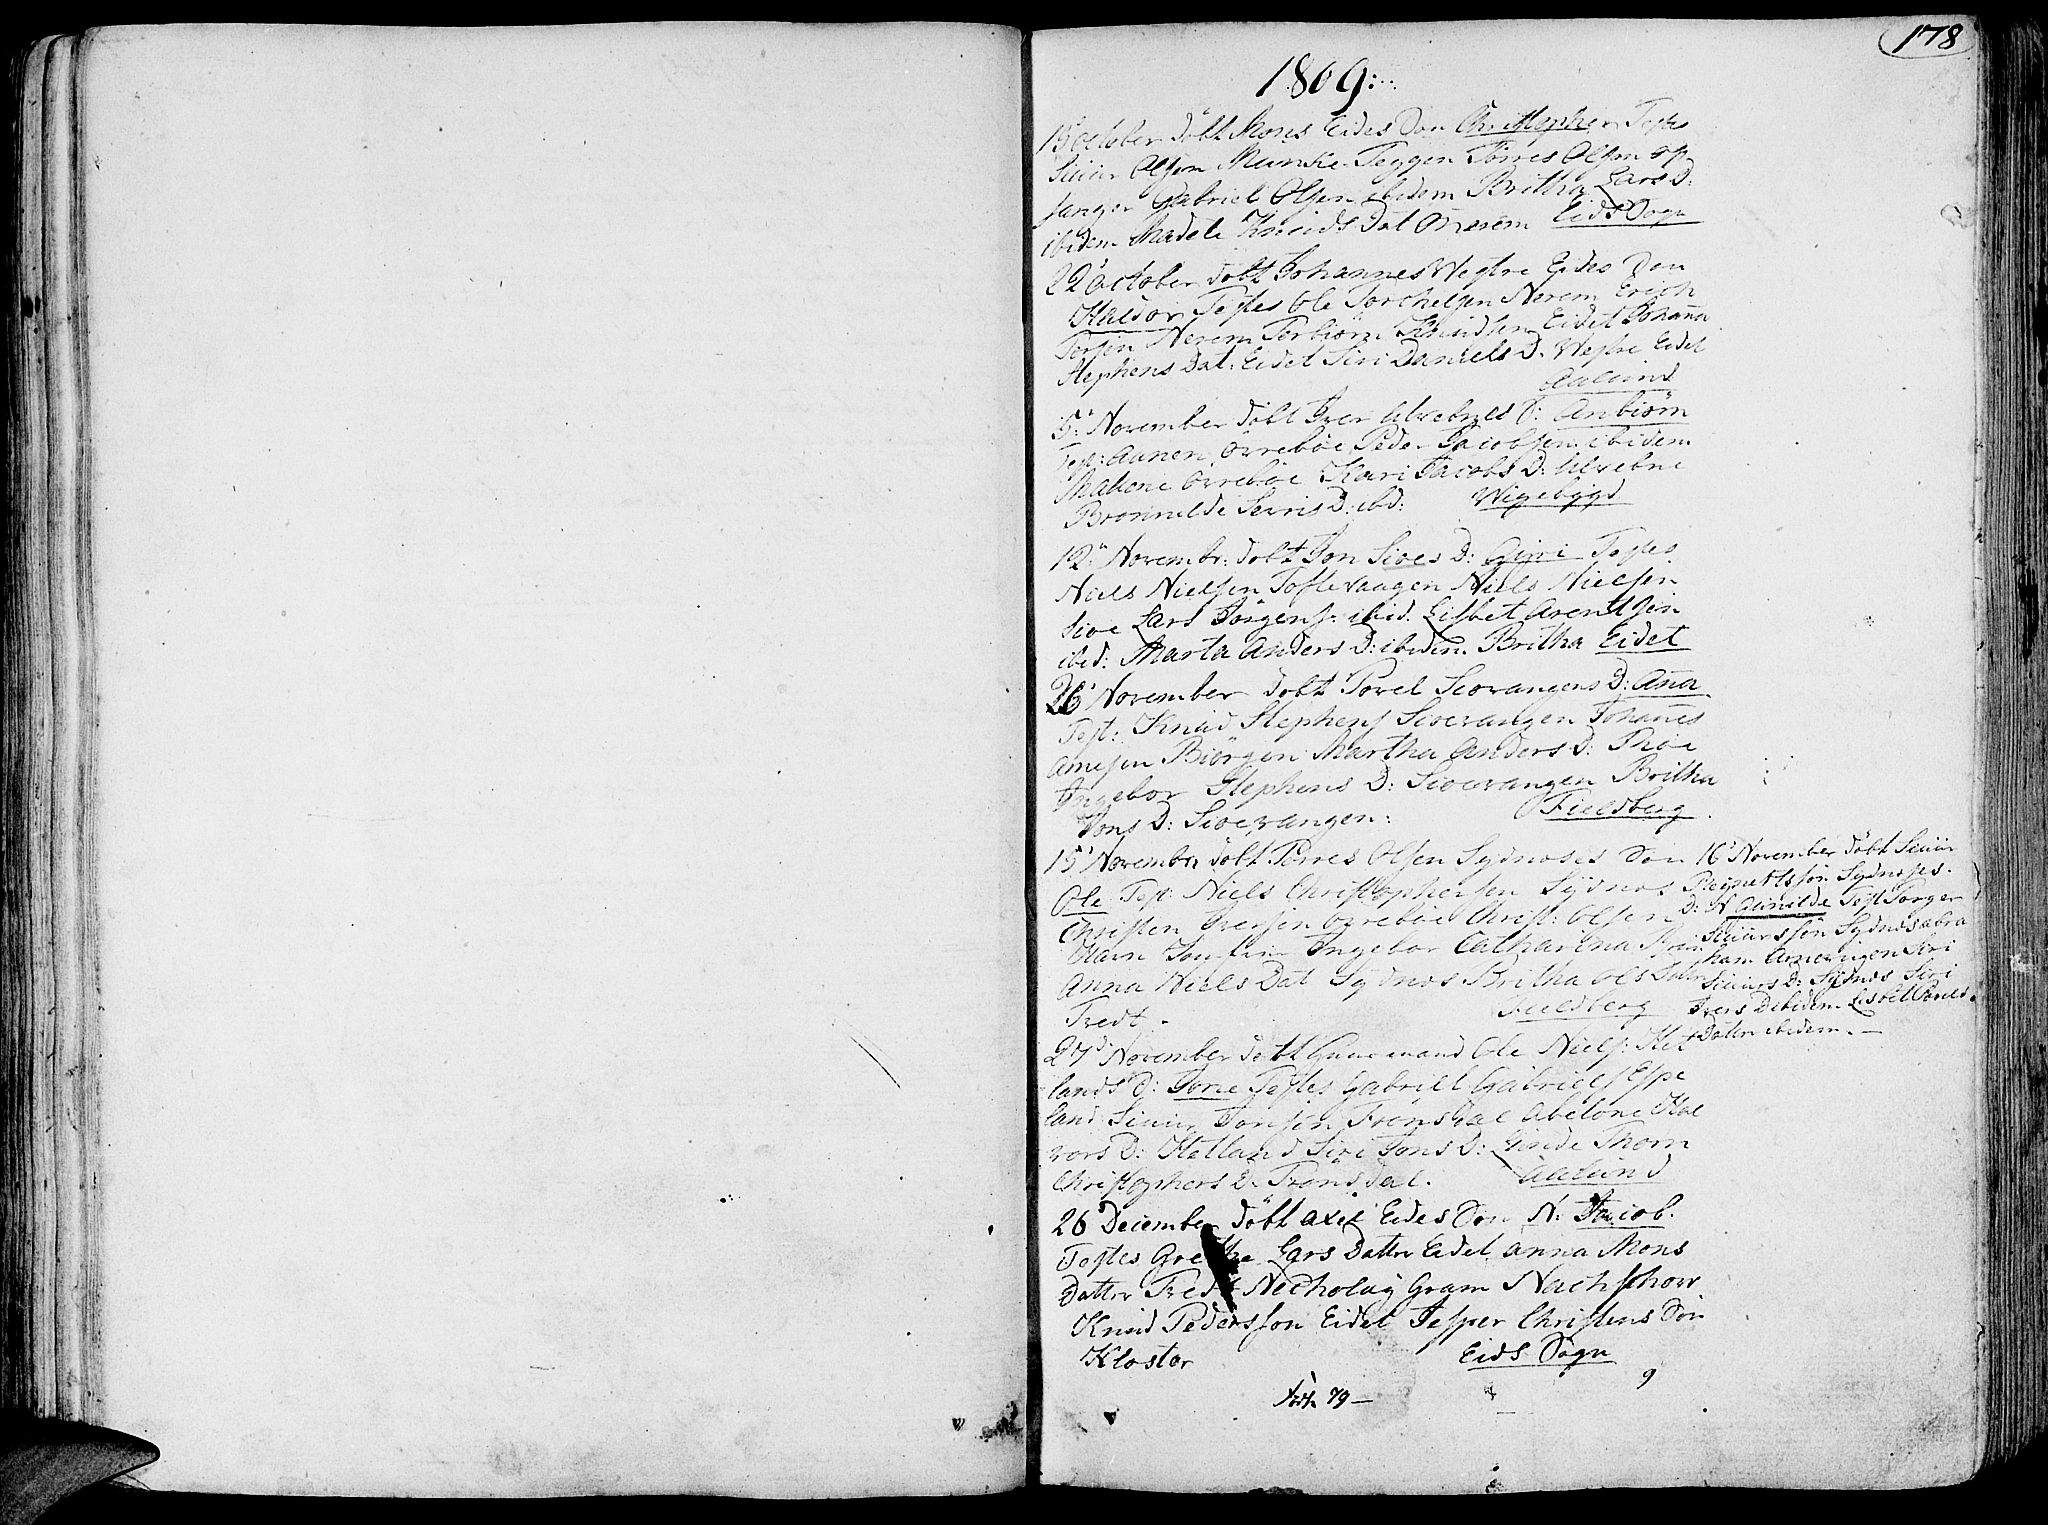 178
1809:
15 october döbt Mons Eides Søn Christopher Testes
Siuur Olsen Munke Teggen Tørres Olsen op
sanger Gabriel Olsen ibidem Britha Lars D:
ibidem Madele Knuds Dat Merem Eids Sogn
22 october döbt Johannes Westre Eides Søn
Haldor Testes Ole Torchelsen Nerem Erich
Nerem Torbiørn Knudsen Eidet Johanna
Stephens Dat: Eidet Siri Daniels D. Westre Eidet
Aalund
5: November döbt Iver Ulvebnes D: Anbiørn
Test: Aanen Orrebøe Peder Jacobsen ibidem
Malene Orrebøe Kari Jacobs D: Ulvebne
Bronnilde Serris D: ibd: Wigebygd
12 Novembr: döbt Jon Sioes D: Giyri Testes
Niels Nielsen Toftevaagen Niels Nielsen
Sioe Lars Jörgens: ibid. Lisbet Arentsen
ibid: Marta Anders D: ibidem Britha Eidet
26 November döbt Povel Siovangens D: Ana
Test: Knud Stephens Sioevangen Johannes
Arnesen Biørgen Martha Anders D: Thoe
Ingebor Stephens D: Sioevangen Britha
Jons D: Sioevangen: Fieldberg
15 Novembr döbt Torres Olsen Sydneses Søn
Ole Test: Niels Christophersen Sydnes
Christen Iversen Orrebøe Christ: Olsen
Ingebor Catharina
Anna Niels Dat Sydnes Britha Ols Datter
Tredt. Fieldberg
16 November döbt Siuur
Reynertssøn Sydneses
D: N Gunilde Test Torger
Siuurssøn Sydnes Abra
ham Siri
Siuurs D: Sydnes Siri
Ivers D ibidem Lisbet Povels
Datter ibidem.—
27 November döbt Ole Niels: Het
lands D: Torne Testes Gabriel Gabriels Espe
land Siuur Tonsen Trönsdal Abelone Hal
vors D: Hetland Siri Jons D: Linde Thorn
Christophers D. Trönsdal. Aalund
26 December döbt Axel Eides Søn N: Jacob.
Testes Grethe Lars Datter Eidet Anna Mons
Datter Tredt Necholay Gram Nachschow
Knud Pederssøn Eidet Jesper Christens Søn
Kloster Eids Sogn
9
79—